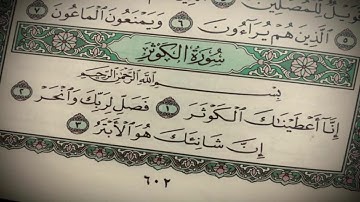 فَوَيْلٌ لِّلْمُصَلِّينَ
الَّذِينَ هُمْ يُرَآءُونَ ٦ وَيَمْنَعُونَ الْمَاعُونَ ٧
سُورَةُ الْكَوْثَرِ
بِسْمِ اللَّهِ الرَّحْمَٰنِ الرَّحِيمِ
إِنَّآ أَعْطَيْنَٰكَ الْكَوْثَرَ ١ فَصَلِّ لِرَبِّكَ وَانْحَرْ ٢
إِنَّ شَانِئَكَ هُوَ الْأَبْتَرُ ٣
٦٠٢